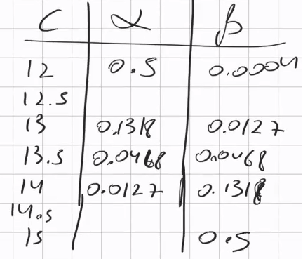 C α β
12 0.5 0.0004
12.5
13 0.1318 0.0127
13.5 0.0468 0.0468
14 0.0127 0.1318
14.5
15 0.5